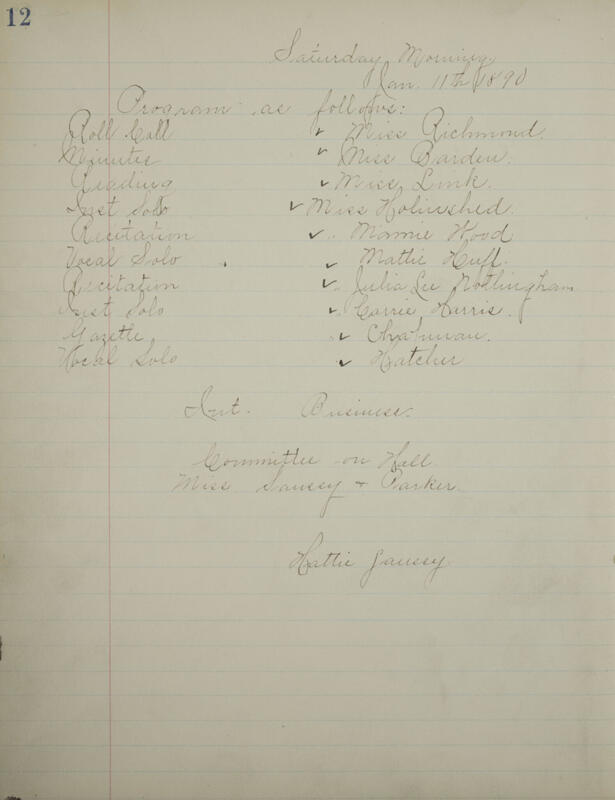 12
Saturday Morning,
Jan. 11th 1890
Program as follows:
Roll Call ✓ Miss Richmond.
Minutes ✓ Miss Barden.
Reading ✓ Miss Link.
Inst Solo ✓ Miss Holinshed.
Recitation ✓ Mamie Wood
Vocal Solo ✓ Mattie Huff.
Recitation ✓ Julia Lee Nottingham
Inst Solo ✓ Carrie Harris.
Gazette ✓ Chapman.
Vocal Solo ✓ Hatcher
Int. Business.
Committee on Hall.
Miss Saussy + Parker.
Hattie Saussy.